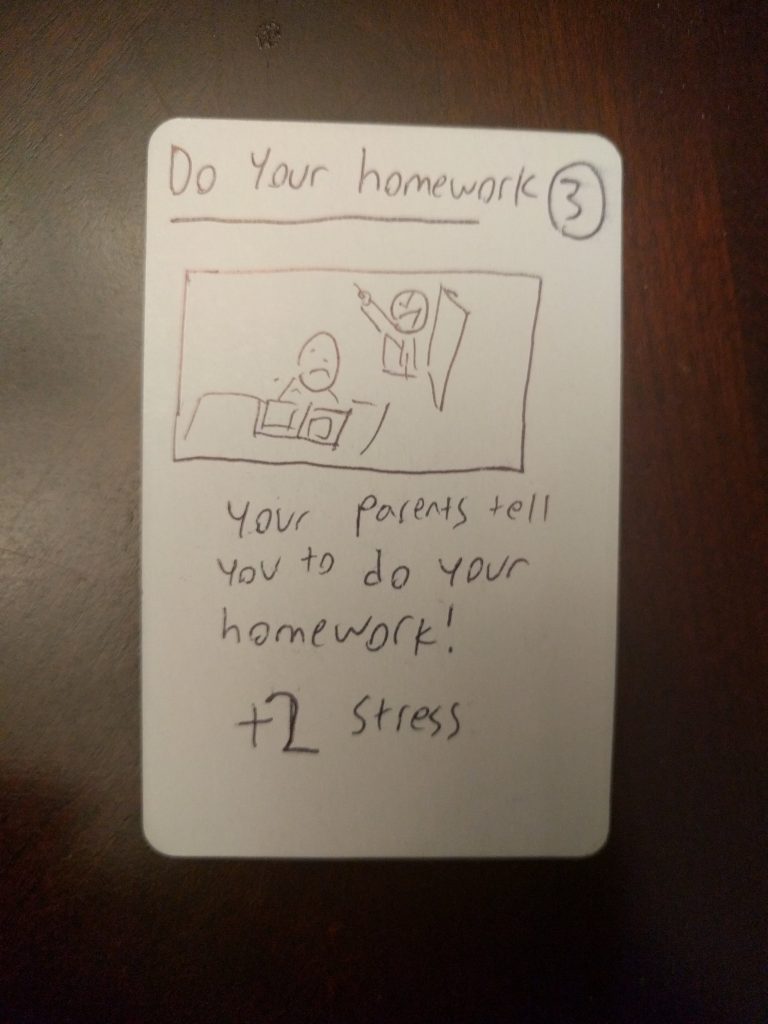 Do Your homework 3
Your parents tell
you to do your
homework!
+2 stress